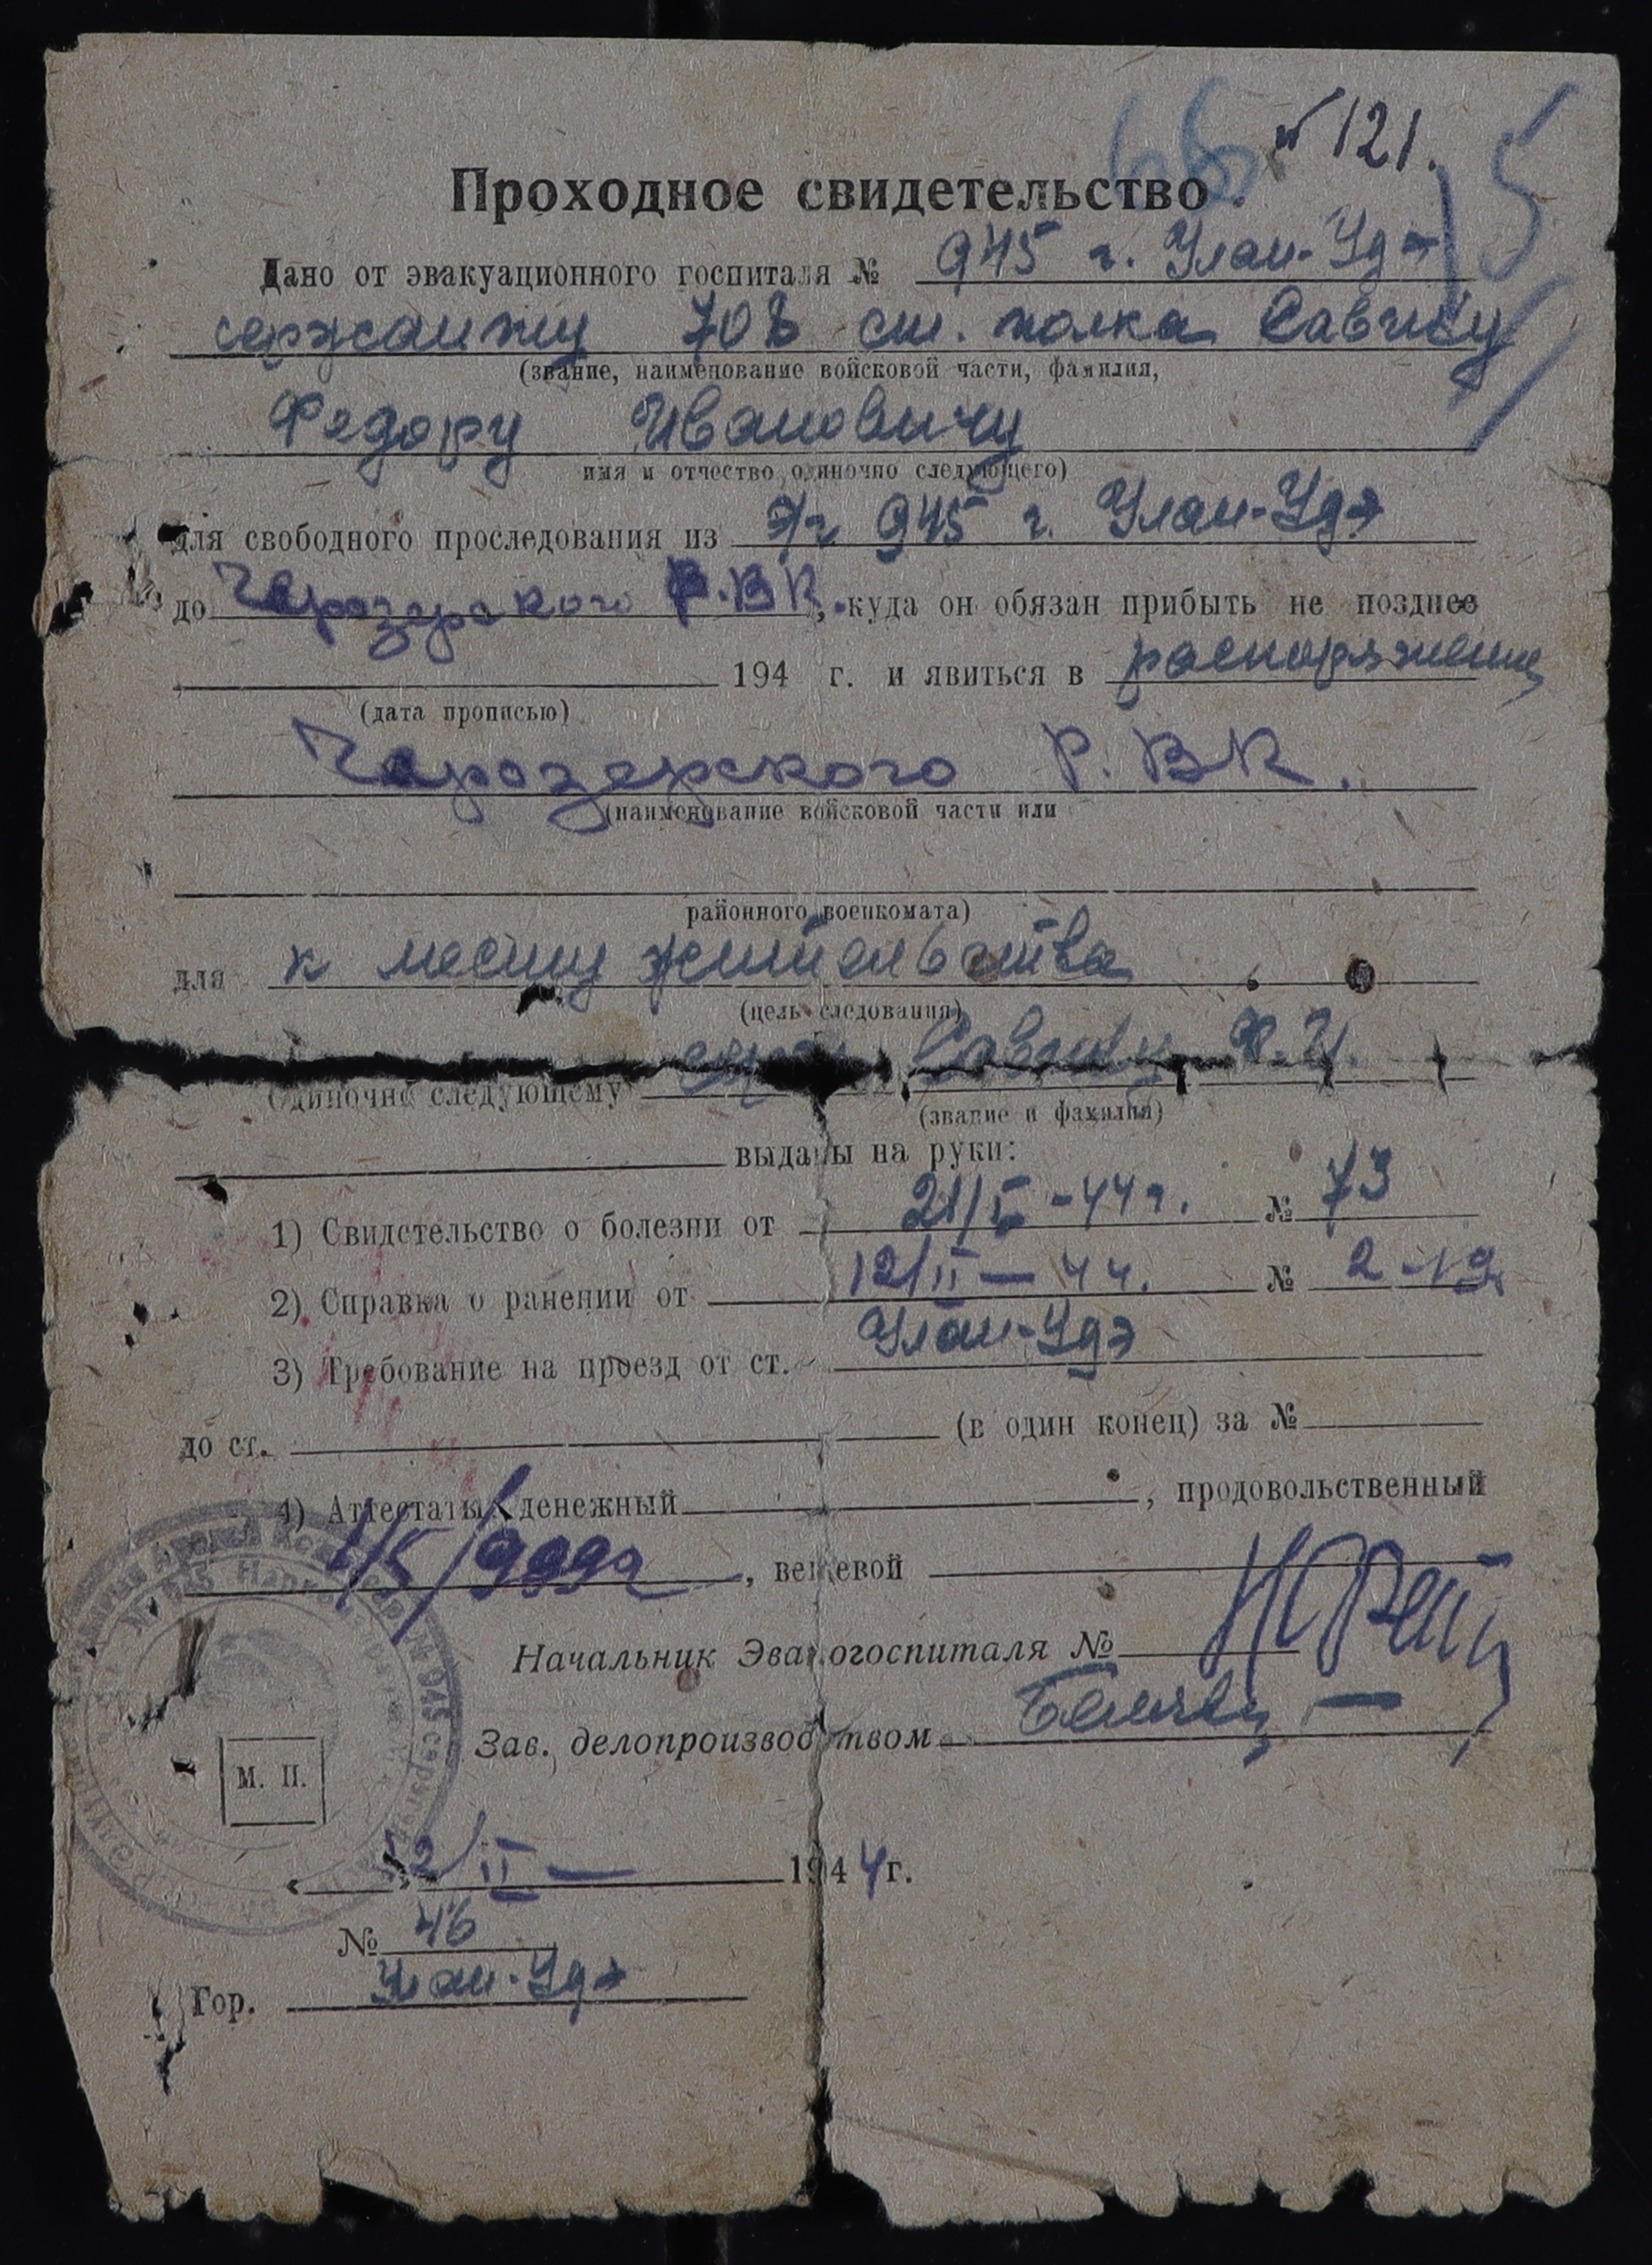 № 121.
66
15
Проходное свидетельство
Дано от эвакуационного госпиталя № 945 г. Улан-Удэ
сержанту 708 сп. полка Савичу
(звание, наименование войсковой части, фамилия,
Федору Ивановичу
имя и отчество одиночно следующего)
для свободного проследования из Э/г 945 г. Улан-Удэ
до Чарозерского Р.ВК., куда он обязан прибыть не позднее
194 г. и явиться в распоряжение
(дата прописью)
Чарозерского Р.ВК.
(наименование войсковой части или
районного военкомата)
для к месту жительства
(цель следования)
Одиночно следующему Ф.И.
(звание и фамилия)
выданы на руки:
1) Свидетельство о болезни от 21/I-44г. № 73
2) Справка о ранении от 12/II — 44. № 2-19
3) Требование на проезд от ст. Улан-Удэ
до ст. (в один конец) за №
4) Аттестаты: денежный , продовольственный
, вещевой
Начальник Эвакогоспиталя №
Зав. делопроизводством
М. П.
« 12/II — 1944 г.
№ 46
Гор. Улан-Удэ